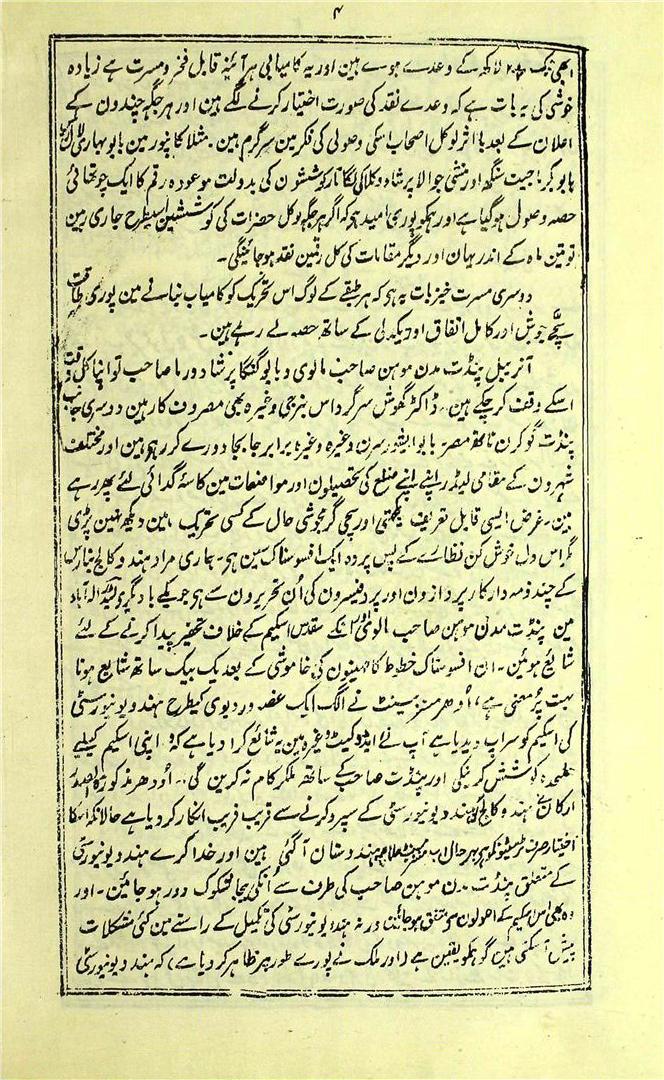 ۴
ابھی تک ۲۰ لاکھ کے وعدے ہوے ہین اور یہ کامیابی ہر آئینہ قابل فخر و مسرت ہے زیادہ
خوشی کی یہ بات ہے کہ وعدے نقد کی صورت اختیار کرنے لگے ہین اور ہر جگہ چند دن کے
اعلان کے بعد با اثر لوکل اصحاب اسکی وصولی کی فکر مین سرگرم ہین۔ مثلا کانپور مین بابو بہاری لال
بابو بکرماجیت سنگھ اور منشی جوالا پرشاد وکلا کی لگاتار کوششون کی بدولت موعودہ رقم کا ایک چوتھائی
حصہ وصول ہوگیا ہے اور ہمکو پوری امید ہے کہ اگر ہر جگہ لوکل حضرات کی کوششین اسیطرح جاری رہین
تو تین ماہ کے اندر یہان اور دیگر مقامات کی کل رقمین نقد ہو جائینگی۔
دوسری مسرت خیز بات یہ ہے کہ ہر طبقے کے لوگ اس تحریک کو کامیاب بنانے مین پوری طاقت
سچے جوش اور کامل اتفاق اور یکدلی کے ساتھ حصہ لے رہے ہین۔
آنریبل پنڈت مدن موہن صاحب مالوی و بابو گنگا پرشاد ورما صاحب تو اپنا کل وقت
اسکے وقف کرچکے ہین۔ ڈاکٹر گھوش سرگرداس بنرجی وغیرہ بھی مصروف کار ہین دوسری جانب
پنڈت گوکرن ناتھ مصر۔ بابو ایشور سرن وغیرہ وغیرہ برابر جا بجا دورے کر رہے ہین اور مختلف
شہرون کے مقامی لیڈر اپنے اپنے ضلع کی تحصیلون اور مواضعات مین کاسۂ گدائی لئے پھر رہے
ہین۔ غرض ایسی قابل تعریف یکجہتی اور سچی گرمجوشی حال کے کسی تحریک مین دیکھ نہین پڑی
مگر اس دل خوش کن نظارے کے پس پردہ ایک افسوسناک سین ہے۔ ہماری مراد ہندو کالج بنارس
کے چند ذمہ دار کارپردازون اور پروفیسرون کی اُن تحریرون سے ہے جو یکے بادیگرے لیڈر الہ آباد
مین پنڈت مدن موہن صاحب مالوی اور انکے مقدس اسکیم کے خلاف تحقیر پیدا کرنے کے لئے
شایع ہوئین۔ ان افسوسناک خطوط کا مہینون کی خاموشی کے بعد یک بیک ساتھ شایع ہونا
بہت پُر معنی ہے، اُدھر مسز بیسنٹ نے الگ ایک غصہ ور دیوی کیطرح ہندو یونیورسٹی
کی اسکیم کو سراپ دیدیا ہے آپ نے ایڈوکیٹ وغیرہ مین یہ شائع کرا دیا ہے کہ وہ اپنی اسکیم کیلیے
علیحدہ کوشش کرینگی اور پنڈت صاحب کے ساتھ ملکر کام نہ کرین گی۔ اودھر مذکورۂ الصدر
ارکان نے ہندو کالج کو ہندو یونیورسٹی کے سپرد کرنے سے قریب قریب انکار کر دیا ہے حالانکہ اسکا
اختیار صرف ٹرسٹیونکو ہے بہر حال اب مسز بیسنٹ ہندوستان آگئی ہین اور خدا کرے ہندو یونیورسٹی
کے متعلق پنڈت مدن موہن صاحب کی طرف سے اُنکی بیجا شکوک دور ہو جائین۔ اور
وہ بھی اس اسکیم کے اصولون سے متفق ہو جائین ورنہ ہندو یونیورسٹی کی تکمیل کے راستے مین کئی مشکلات
پیش آسکتی ہین گو ہمکو یقین ہے (اور ملک نے پورے طور پر ظاہر کر دیا ہے) کہ ہندو یونیورسٹی